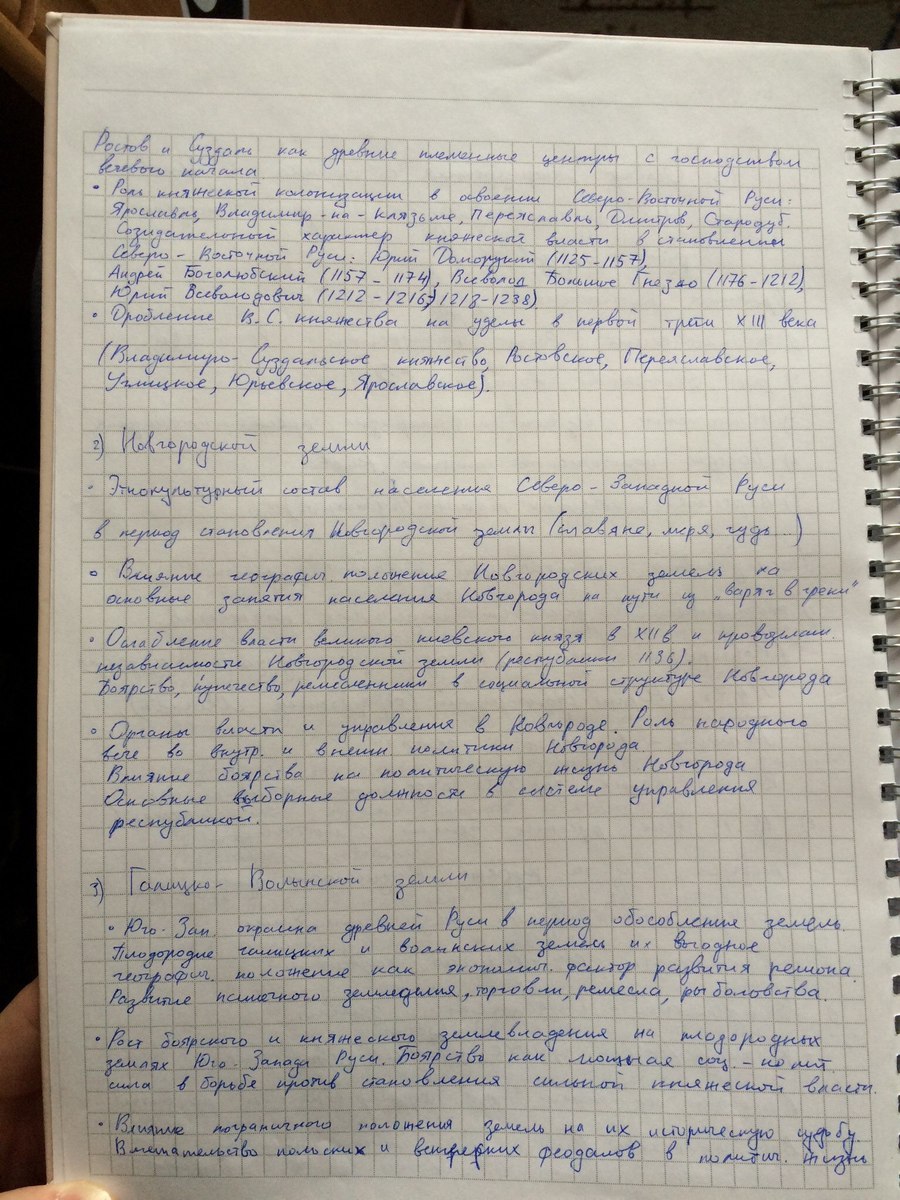 Ростов и Суздаль как древние племенные центры с господством
вечевого начала
• Роль княжеской колонизации в освоении Северо-Восточной Руси:
Ярославль, Владимир-на-Клязьме, Переяславль, Дмитров, Стародуб.
Созидательный характер княжеской власти в становлении
Северо-Восточной Руси: Юрий Долгорукий (1125-1157)
Андрей Боголюбский (1157-1174), Всеволод Большое Гнездо (1176-1212),
Юрий Всеволодович (1212-1216; 1218-1238)
• Дробление В.С. княжества на уделы в первой трети XIII века
(Владимиро-Суздальское княжество, Ростовское, Переяславское,
Углицкое, Юрьевское, Ярославское).
2) Новгородской земли
• Этнокультурный состав населения Северо-Западной Руси
в период становления Новгородской земли (славяне, меря, чудь...)
• Влияние географич. положение Новгородских земель на
основные занятия населения Новгорода на пути из „варяг в греки"
• Ослабление власти великого киевского князя в XII в. и провозглаш.
независимости Новгородской земли (республики 1136).
Боярство, купечество, ремесленники в социальной структуре Новгорода
• Органы власти и управления в Новгороде. Роль народного
вече во внутр. и внешн. политики Новгорода.
Влияние боярства на политическую жизнь Новгорода
Основные выборные должности в системе управления
республикой.
3) Галицко-Волынской земли
• Юго-Зап. окраина древней Руси в период обособления земель.
Плодородие галицких и волынских земель их выгодное
географич. положение как экономич. фактор развития региона.
Развитие пашенного земледелия, торговли, ремесла, рыболовства.
• Рост боярского и княжеского землевладения на плодородных
землях Юго-Запада Руси. Боярство как мощная соц.-полит.
сила в борьбе против становления сильной княжеской власти.
• Влияние пограничного положения земель на их историческую судьбу.
Вмешательство польских и венгерских феодалов в политич. жизнь